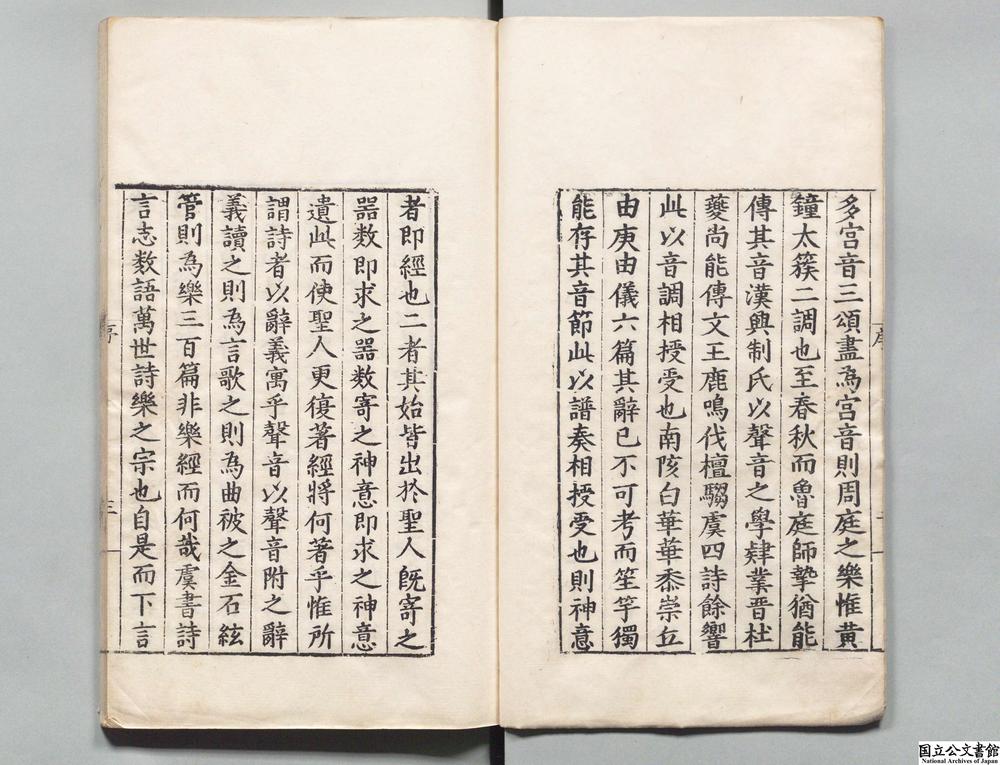 多宫音三頌盡為宫音則周庭之樂惟黄
鐘太簇二調也至春秋而魯庭師摯猶能
傳其音漢興制氏以聲音之學肄業晋杜
夔尚能傳文王鹿鳴伐檀騶虞四詩餘響
此以音調相授受也南陔白華華黍崇丘
由庚由儀六篇其辭已不可考而笙竽獨
能存其音節此以譜奏相授受也則神意
者即經也二者其始皆出於聖人既寄之
器数即求之器数寄之神意即求之神意
遺此而使聖人更復著經將何著乎惟所
謂詩者以辭義寓乎聲音以聲音附之辭
義讀之則為言歌之則為曲被之金石絃
管則為樂三百篇非樂經而何哉虞書詩
言志数語萬世詩樂之宗也自是而下言
序
三
国立公文書館
National Archives of Japan